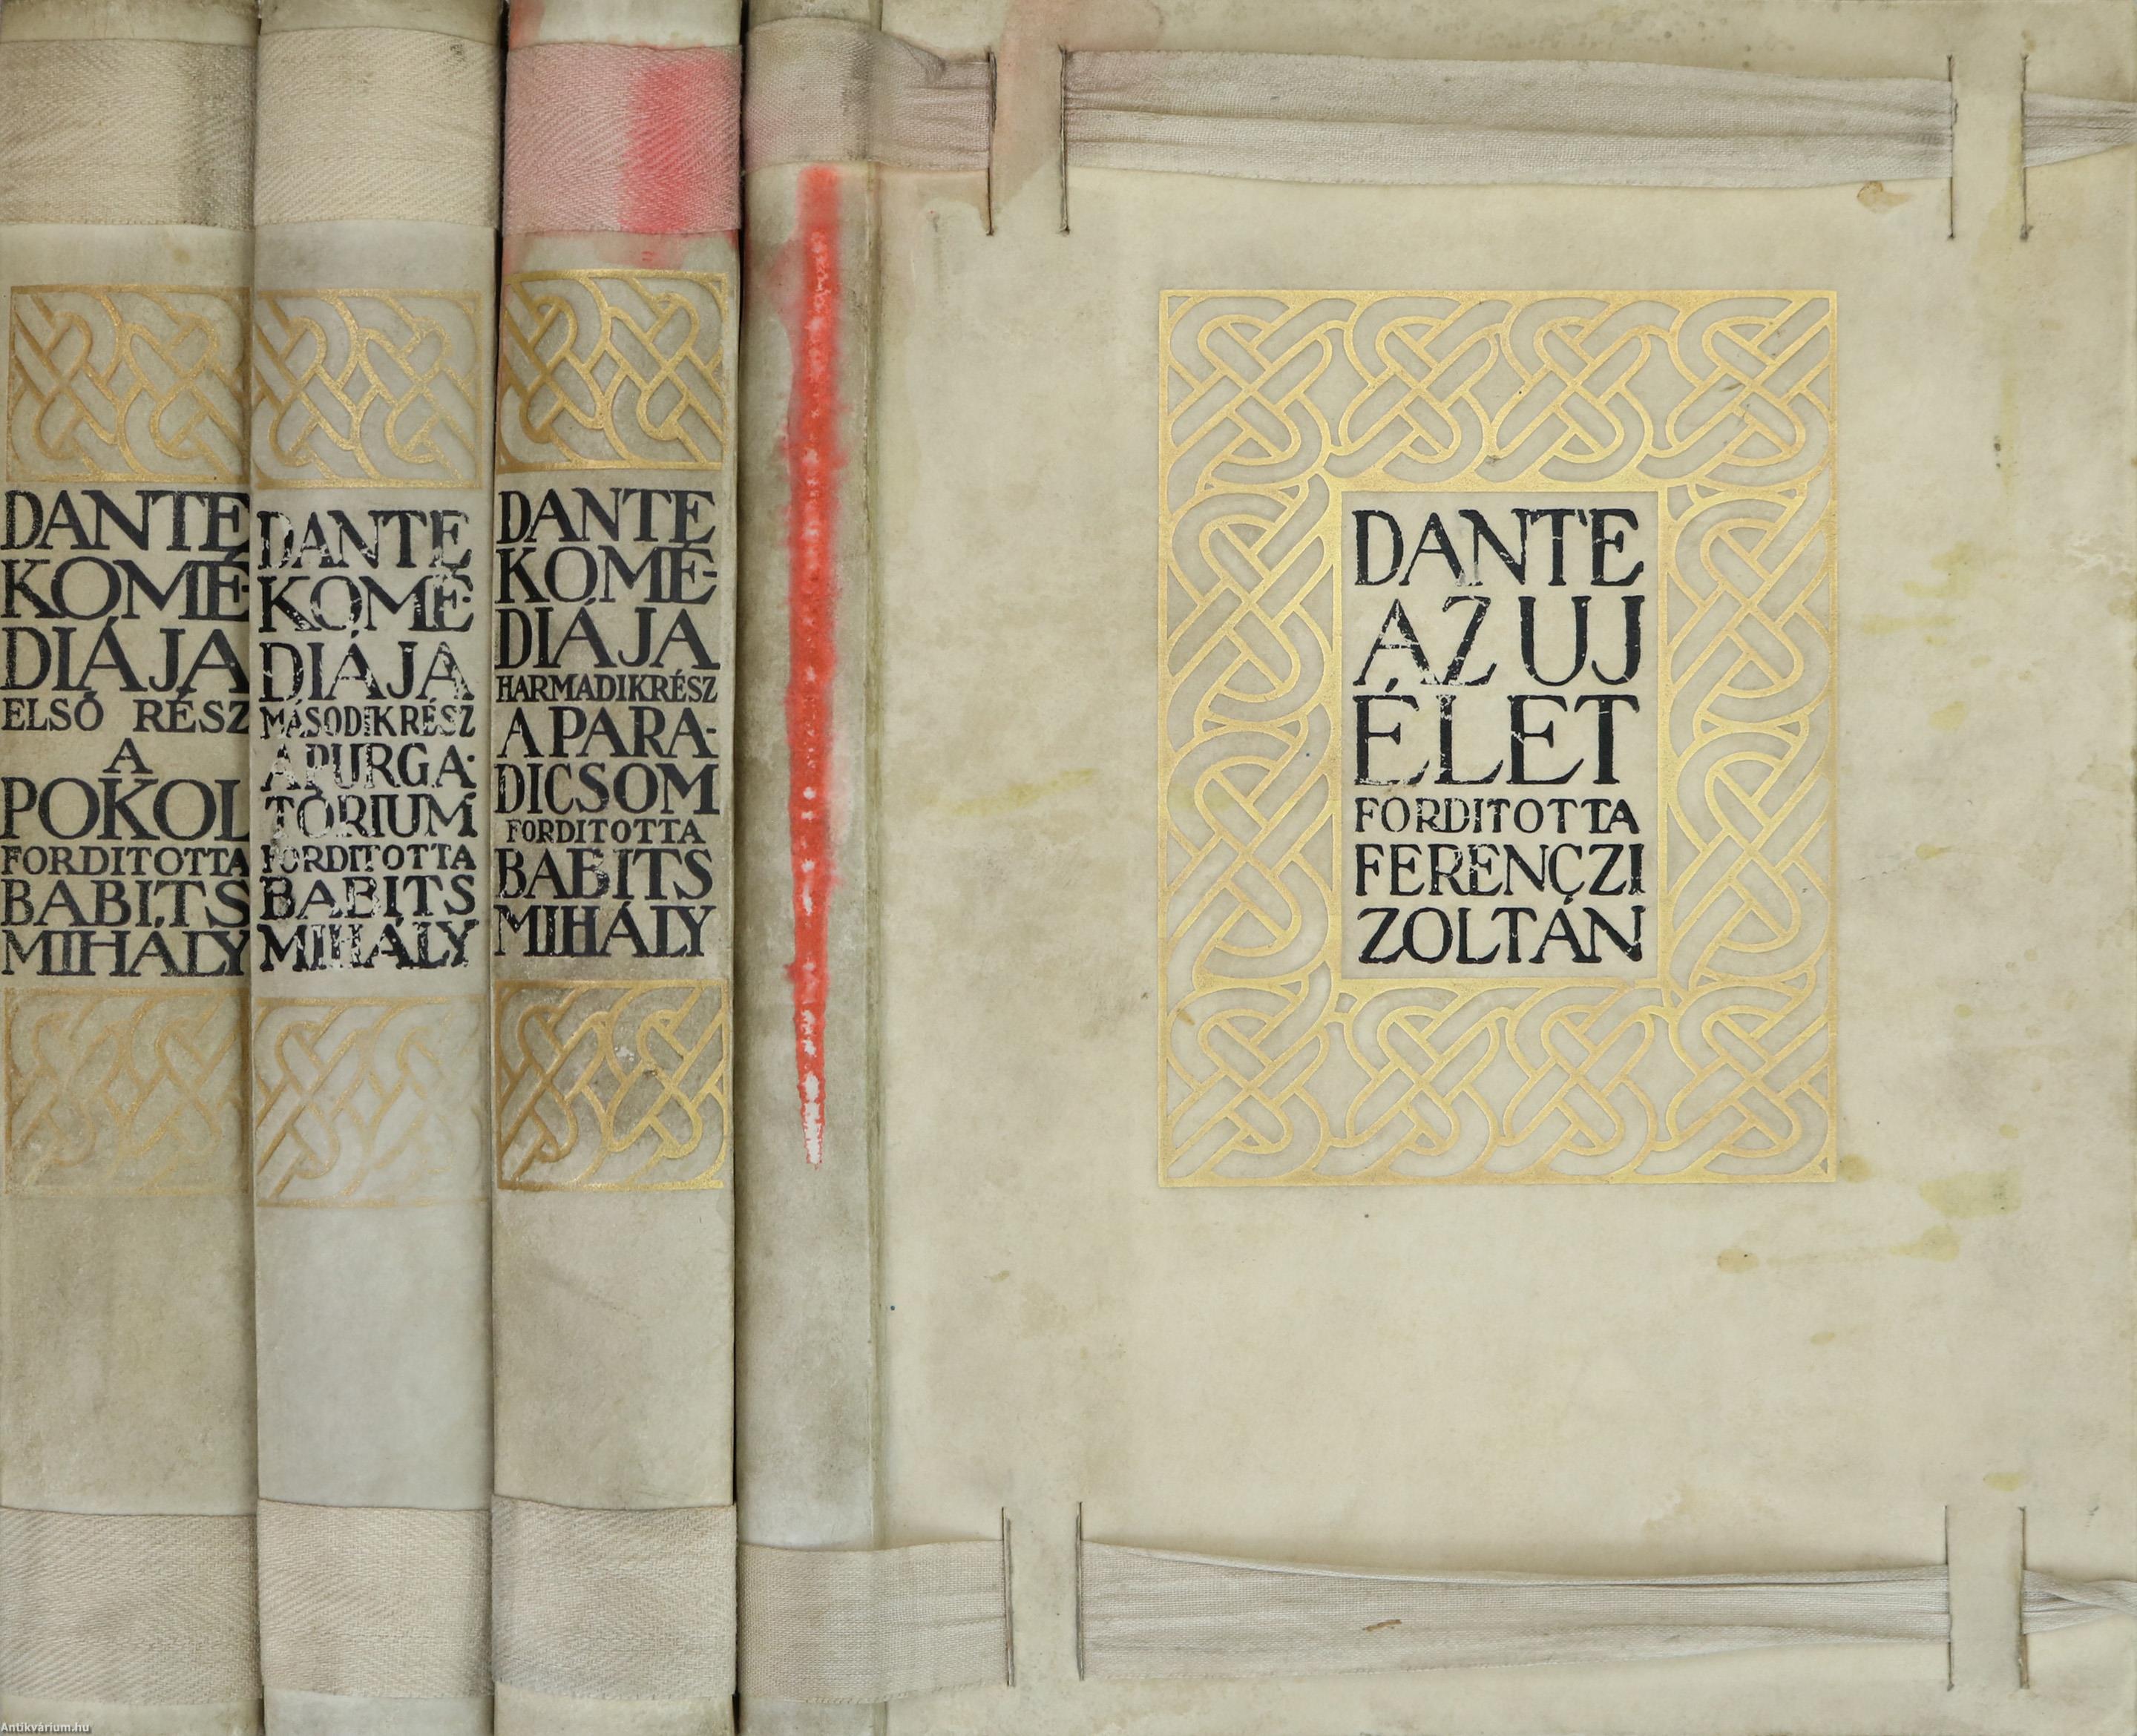 DANTE
KOMÉ-
DIÁJA
ELSŐ RÉSZ
A
POKOL
FORDITOTTA
BABITS
MIHÁLY
DANTE
KOMÉ-
DIÁJA
MÁSODIK RÉSZ
A PURGA-
TÓRIUM
FORDITOTTA
BABITS
MIHÁLY
DANTE
KOMÉ-
DIÁJA
HARMADIK RÉSZ
A PARA-
DICSOM
FORDITOTTA
BABITS
MIHÁLY
DANTE
AZ UJ
ÉLET
FORDITOTTA
FERENCZI
ZOLTÁN
Antikvárium.hu